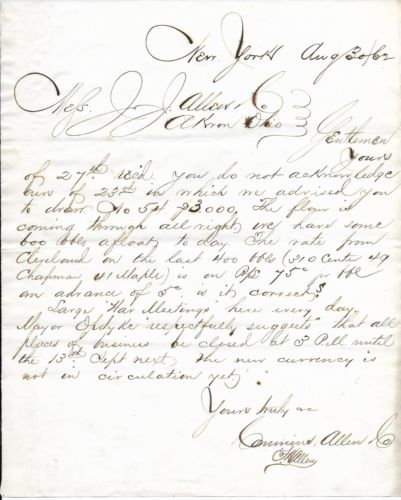 New York Aug 30/62
Mess. J. J. Allen & Co
Akron Ohio
Gentlemen
Yours
of 27th rec'd. you do not acknowledge
ours of 23rd in which we advised you
to draw $3000. The flour is
coming through all right, we have some
600 bbls afloat to day The rate from
Cleveland on the last 400 bbls (310 Center 49
Chapman 41 Maple) is on 75c bbl
an advance of 5c is it correct?
Large War Meetings here every day.
Mayor Opdyke respectfully suggests that all
places of business be closed at 3 PM until
the 13th Sept next. The new currency is
not in circulation yet.
Yours truly
Allen & Co